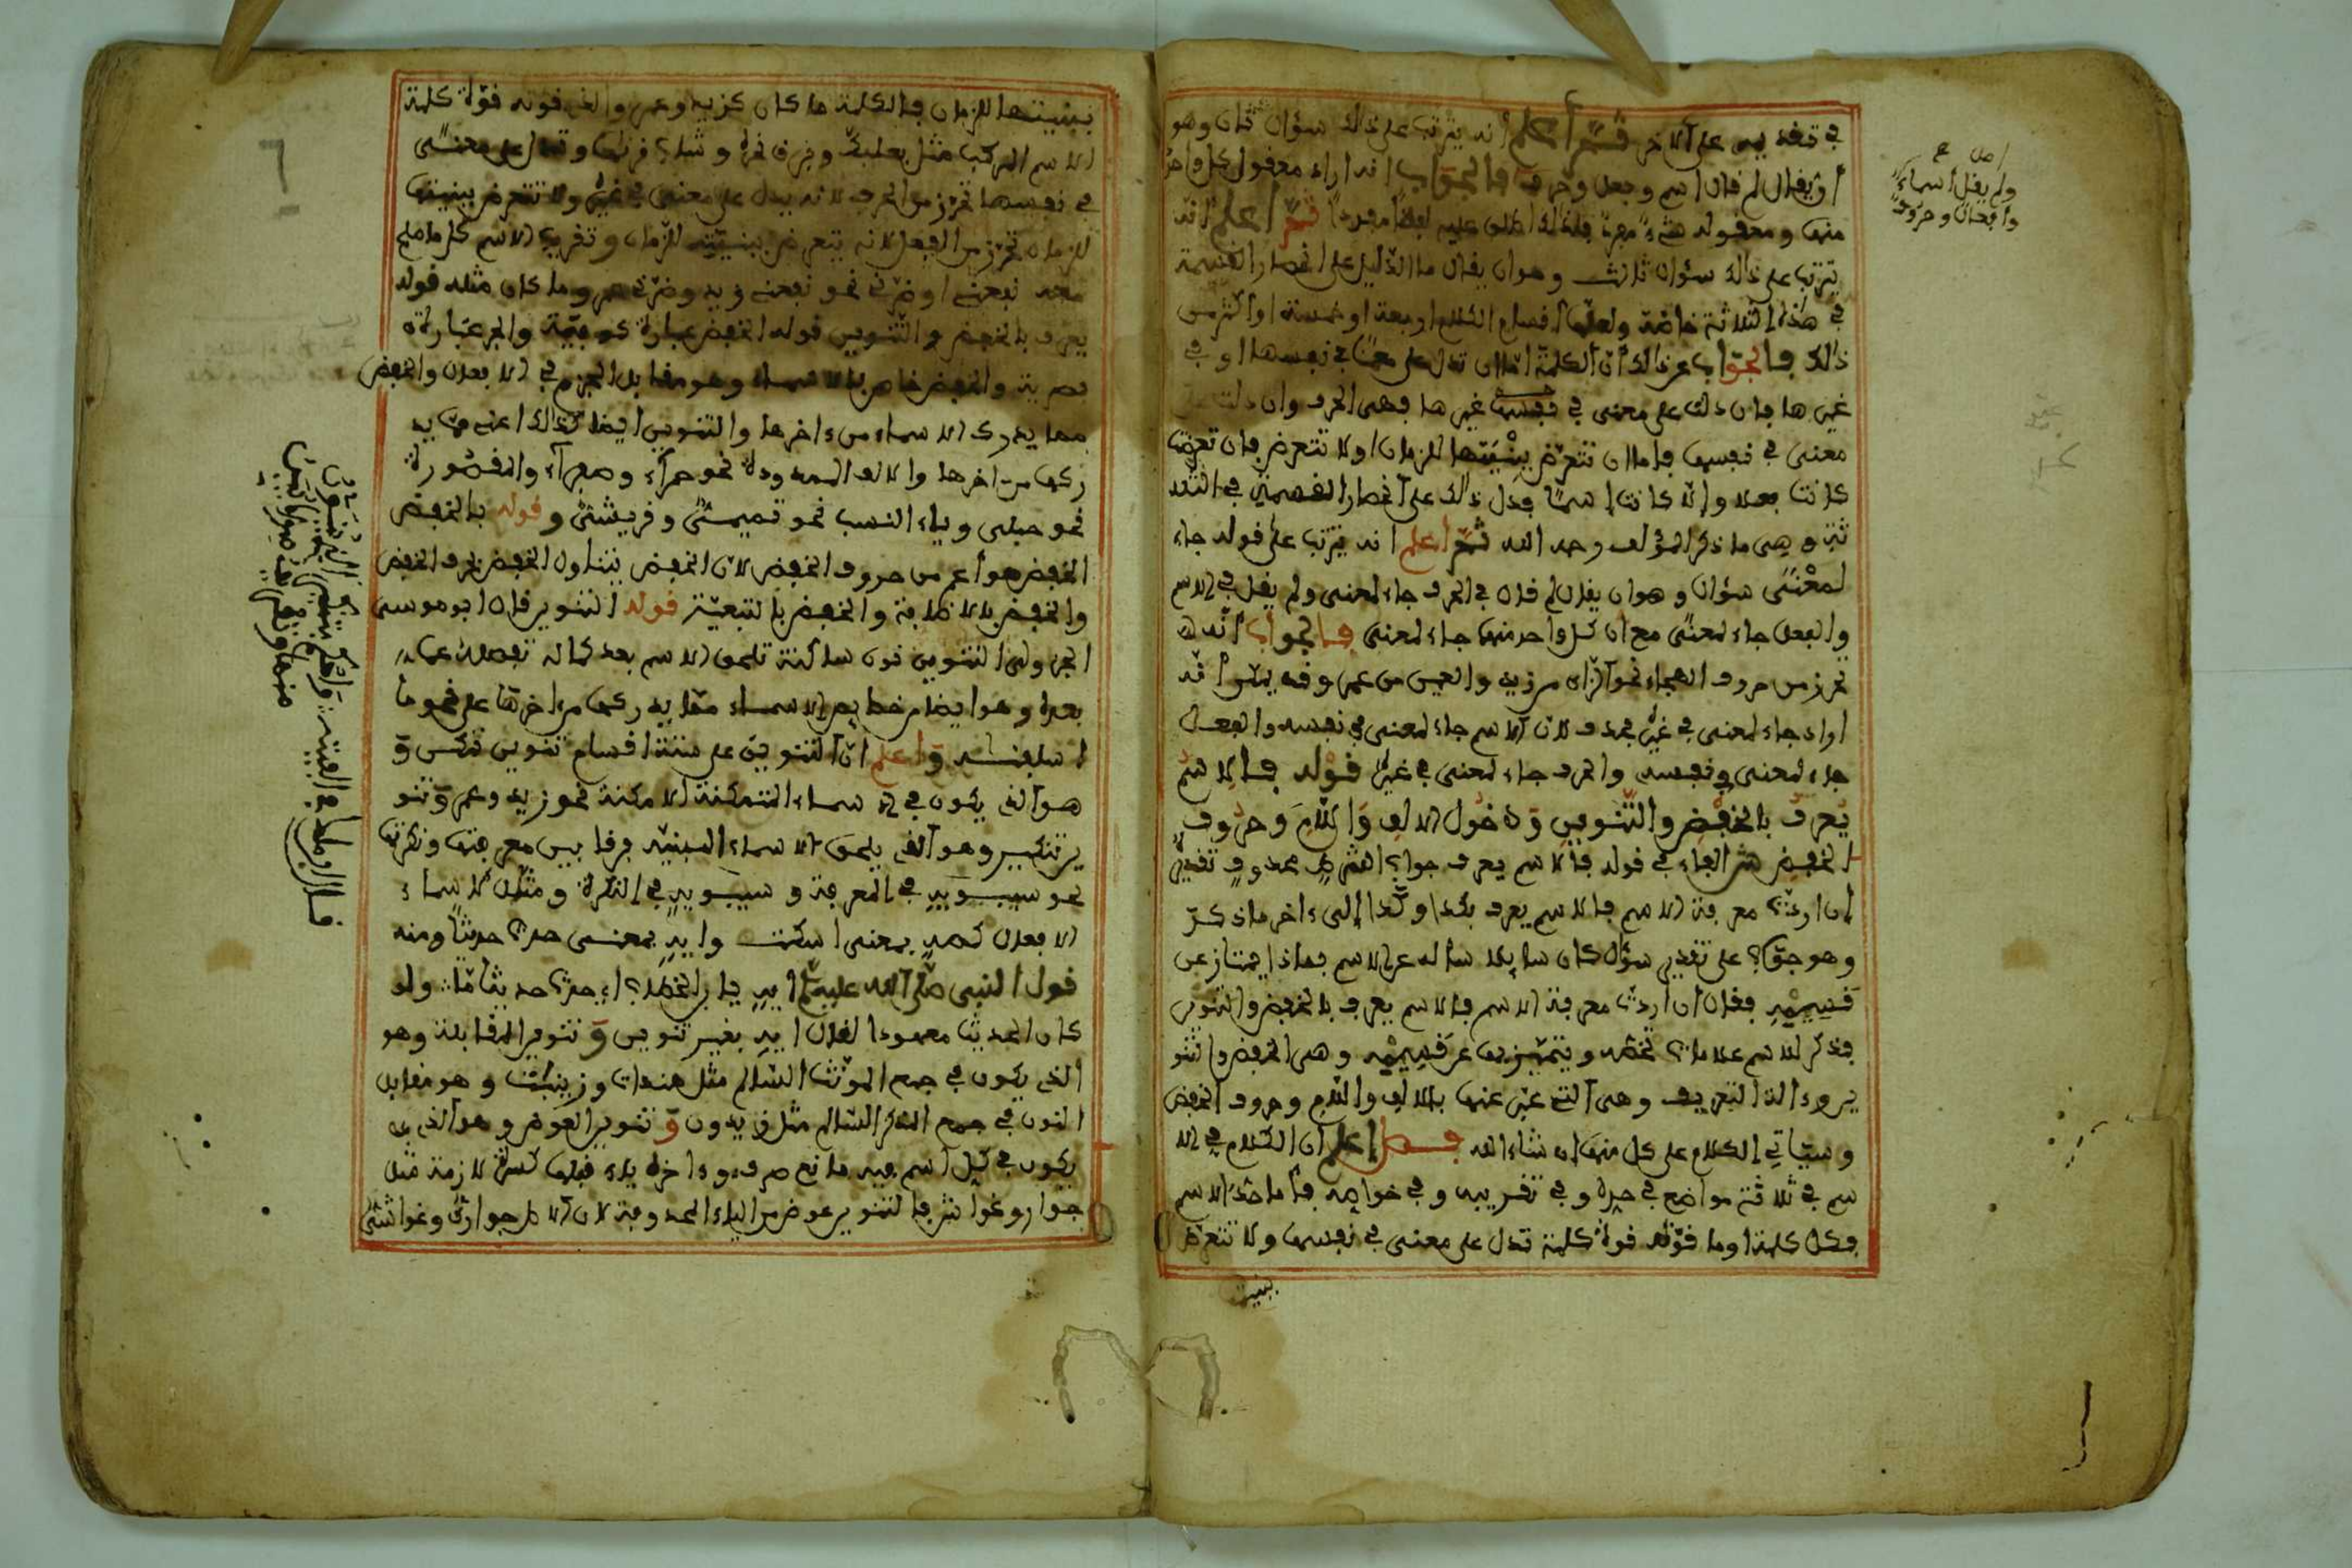 في تقديمه على الآخر ثمّ اعلم انه يترتب على ذالك سؤال ثان وهو
أن يقال لم قال اسم وفعل وحرف فالجواب انه اراد معقول كل واحد
منها ومعقوله شيء مفرد فلذالك اطلق عليه لفظا مفردا ثمّ اعلم انه
يترتب على ذالك سؤال ثالث وهو ان يقال ما الدليل على انحصار القسمة
في هذه الثلاثة خاصّة ولعلها اقسام الكلام اربعة او خمسة او اكثر من
ذالك فالجواب عن ذالك أنّ الكلمة امّا ان تدل على معنًى في نفسها او في
غيرها فإن دلت على معنى في غيرها فهي الحرف وان دلت على
معنى في نفسها فإما ان تتعرّض بِبِنْيَتها للزمان او لا تتعرض فإن تعرضت
كانت فعلا وإلّا كانت اسمًا فدل ذالك على انحصار القسمة في الثلا
ثة وهي ما ذكر المؤلف رحمه الله ثمّ اعلم انه يترتب على قوله جاء
لمعْنًى سؤال وهو ان يقال لم قال في الحرف جاء لمعنى ولم يقل في الاسم
والفعل جاء لمعنًى مع ان كل واحد منها جاء لمعنى فالجواب أنه
تحرز من حروف الهجاء نحو الزاي من زيد والعين من عمرو
اراد جاء لمعنى في غيره فحذف لأن الاسم جاء لمعنى في نفسه والفعل
جاء لمعنى في نفسه والحرف جاء لمعنى في غيره قوله فالاسم
يُعرف بالخفضِ والتَّنوينِ وَدخول الالفِ وَاللامِ وحروف
الخفضِ ش الفاء في قوله فالاسم يعرف جواب الشرط محذوف تقديره
إن اردت معرفة الاسم فالاسم يعرف بكذا وكذا إلى ءاخر ما ذكر
وهو جواب على تقدير سؤال كان سايلا سأله عن الاسم بماذا يمتاز عن
قسيميه فقال ان اردت معرفة الاسم فالاسم يعرف بالخفض والتنوين
فذكر للاسم علامات تخصه ويتميز بها عن قسيميه وهي الخفض والتنو
ين وءالة التعريف وهي التي عبّر عنها بالالف واللام وحروف الخفض
وسيأتي الكلام على كل منها ان شاء الله فصل اعلم ان الكلام في الا
سم في ثلاثة مواضع في حده وفي تقريبه وفي خواصه فأما حدّ الاسم
فكل كلمة او ما قوّته قوة كلمة تدل على معنى في نفسها ولا تتعرض
ببنيت
اصل
ولم يقل أسماءٌ
وأفعالٌ وحروفٌ
ببنيتها للزمان فالكلمة ما كان كزيد وعمرو والذي قوته قوّة كلمة
الاسم المركب مثل بعلبكّ وبرق نحره وشاب قرناها وتدل على معنًى
في نفسها تحرّز من الحرف لانه يدل على معنى في غيره ولا تتعرض ببنيتها
للزمان تحرّز من الفعل لانه يتعرض ببنيته للزمان وتقريب الاسم كل ما صلح
معه نفعني او ضرّني نحو نفعني زيد وضرّني عمرو وما كان مثله قوله
يعرف بالخفض والتّنوين قوله الخفض عبارة كوفيّة والجر عبارة
بصرية والخفض خاص بالاسماء وهو مقابل الجزم في الافعال والخفض
مما يدرك الاسماء من ءاخرها والتنوين ايضا كذالك اعني ممّا يد
ركها من اخرها والالف الممدودة نحو حمراء وصفراء والمقصورة
نحو حبلى وياء النسب نحو تميميّ وقريشيّ وقوله بالخفض
الخفض هو أعم من حروف الخفض لانّ الخفض يتناول الخفض بحرف الخفض
والخفض بالاضافة والخفض بالتبعيّة قوله التنوير قال ابو موسى
الجزولي التنوين نون ساكنة تلحق الاسم بعد كماله تفصله عما
بعده وهو ايضا من خصايص الاسماء ممّا يدركها من ءاخرها على نحو ما
اسلفته وَاعلم انّ التنوين على ستة اقسام تنوين تمكين وَ
هو الذي يكون في الاسماء المتمكنة الامكنة نحو زيد وعمرو وَتنو
ين تنكير وهو الذي يلحق الاسماء المبنيّة فرقا بين معرفتها ونكرتها
نحو سيبويهِ في المعرفة وسيبويهٍ في النكرة ومثله أسماء
الافعال كصهٍ بمعنى اسكت وايهٍ بمعنى حدّث حديثًا ومنه
قول النبي صلى الله عليه وسلم ايهٍ يا بن الخطاب اي حدّث حديثا مّا ولو
كان الحديث معهودا لقال ايهِ بغير تنوين وَتنوين المقابلة وهو
الذي يكون في جمع المؤنّث السّالم مثل هندات وزينبات وهو مقابل
النون في جمع المذكر السّالم مثل زيدون وَتنوين العوض وهو الذي
يكون في كل اسم فيه مانع صرف وءاخره ياء قبلها كسرة لازمة مثل
جوار وغواش فالتنوين عوض من الياء المحذوفة لأن الاصل جواري وغواشي